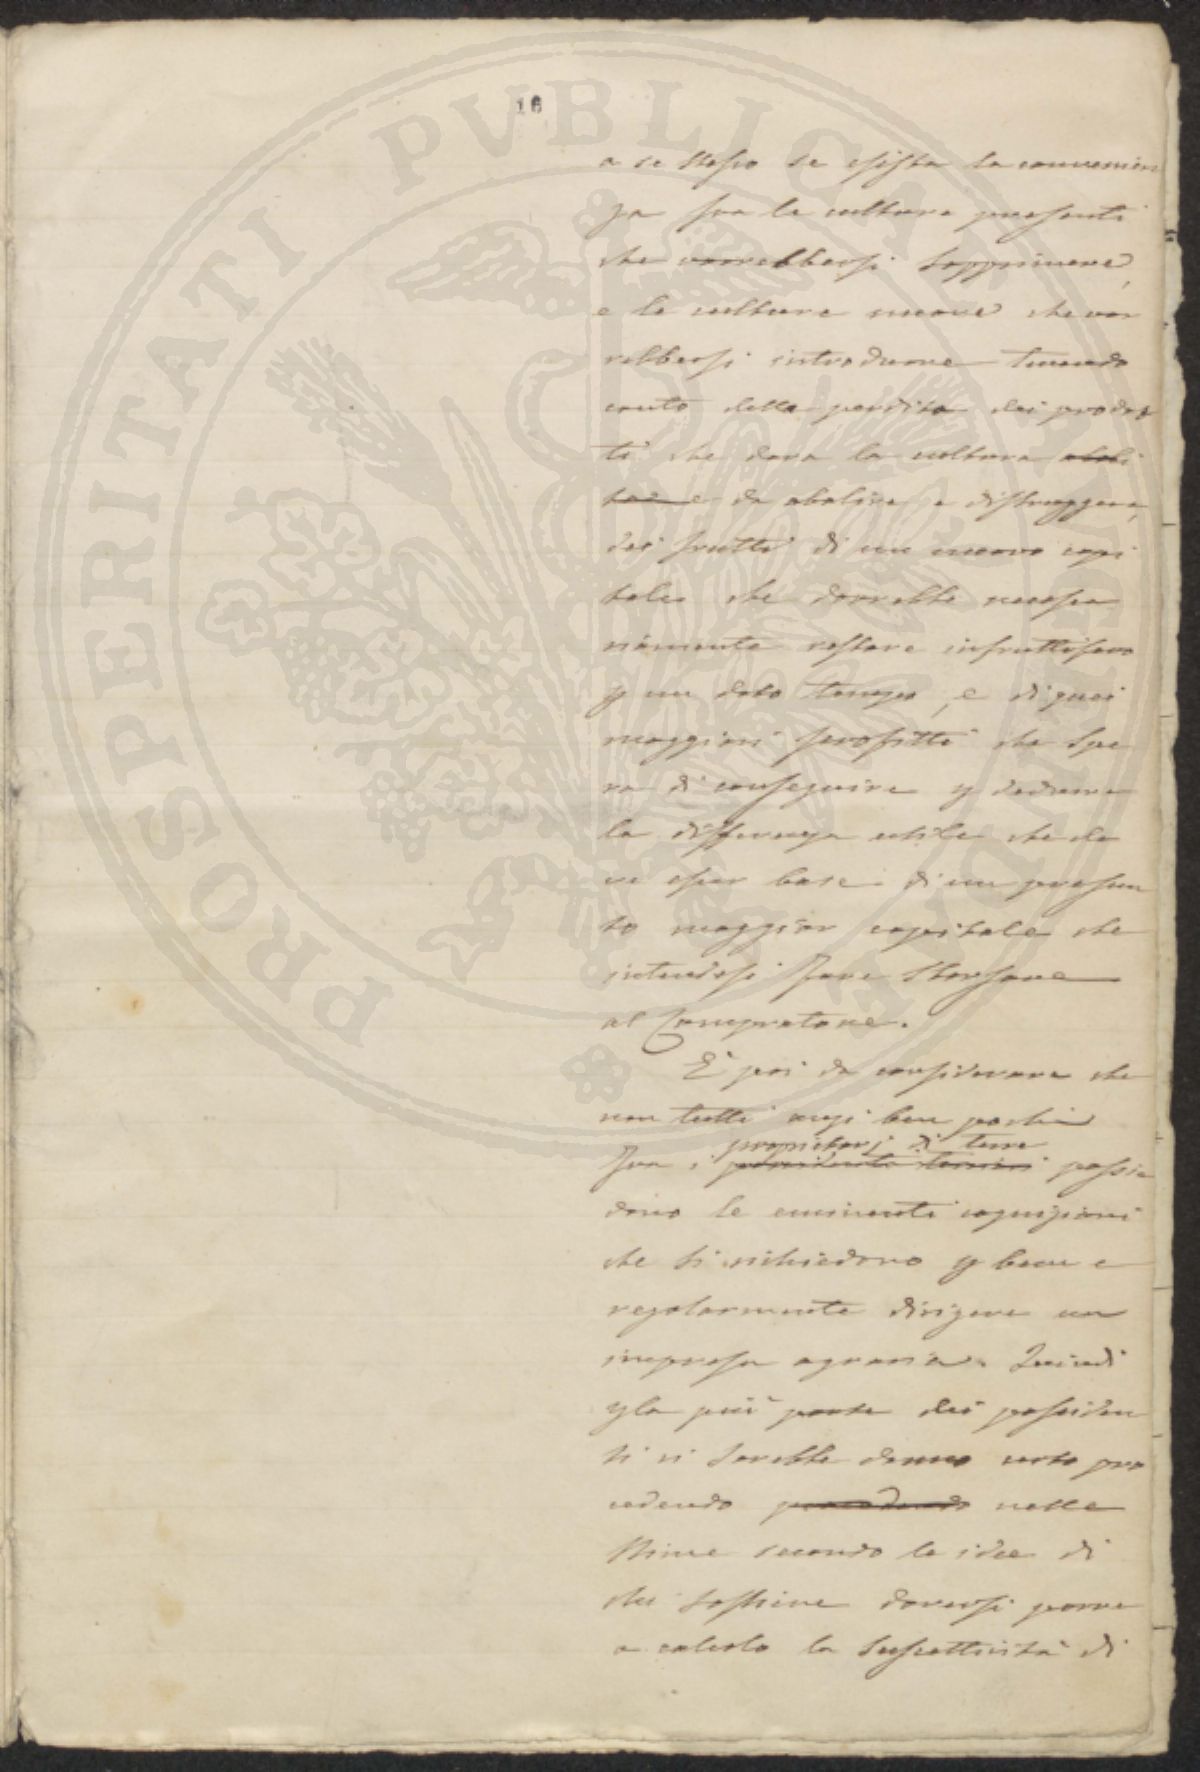 16
a se stesso se esista la convenien
za fra le culture presenti
che vorrebbersi sopprimere,
e le culture nuove che vor
rebbersi introdurre tenendo
conto della perdita dei prodot
ti che dava la cultura aboli
e da abolire e distruggere,
dei frutti di un nuovo capi
tale che dovrebbe necessa
riamente restare infruttifero
p un dato tempo, e di quei
maggiori profitti che spe
ra di conseguire p dedurre
la differenza utile che de
ve esser base di un presun
to maggior capitale che
intendesi fare sborsare
al Compratore.
È poi da considerare che
non tutti anzi ben pochi
proprietarj di terre
fra i possie
dono le eminenti cognizioni
che si richiedono p bene e
regolarmente dirigere un
impresa agraria. Quindi
p la più parte dei possiden
ti vi sarebbe danno certo pro
cedendo procedendo nelle
stime secondo le idee di
chi sostiene doversi porre
a calcolo la suscettività di
PROSPERITATI PVBLICAE AVGENDAE